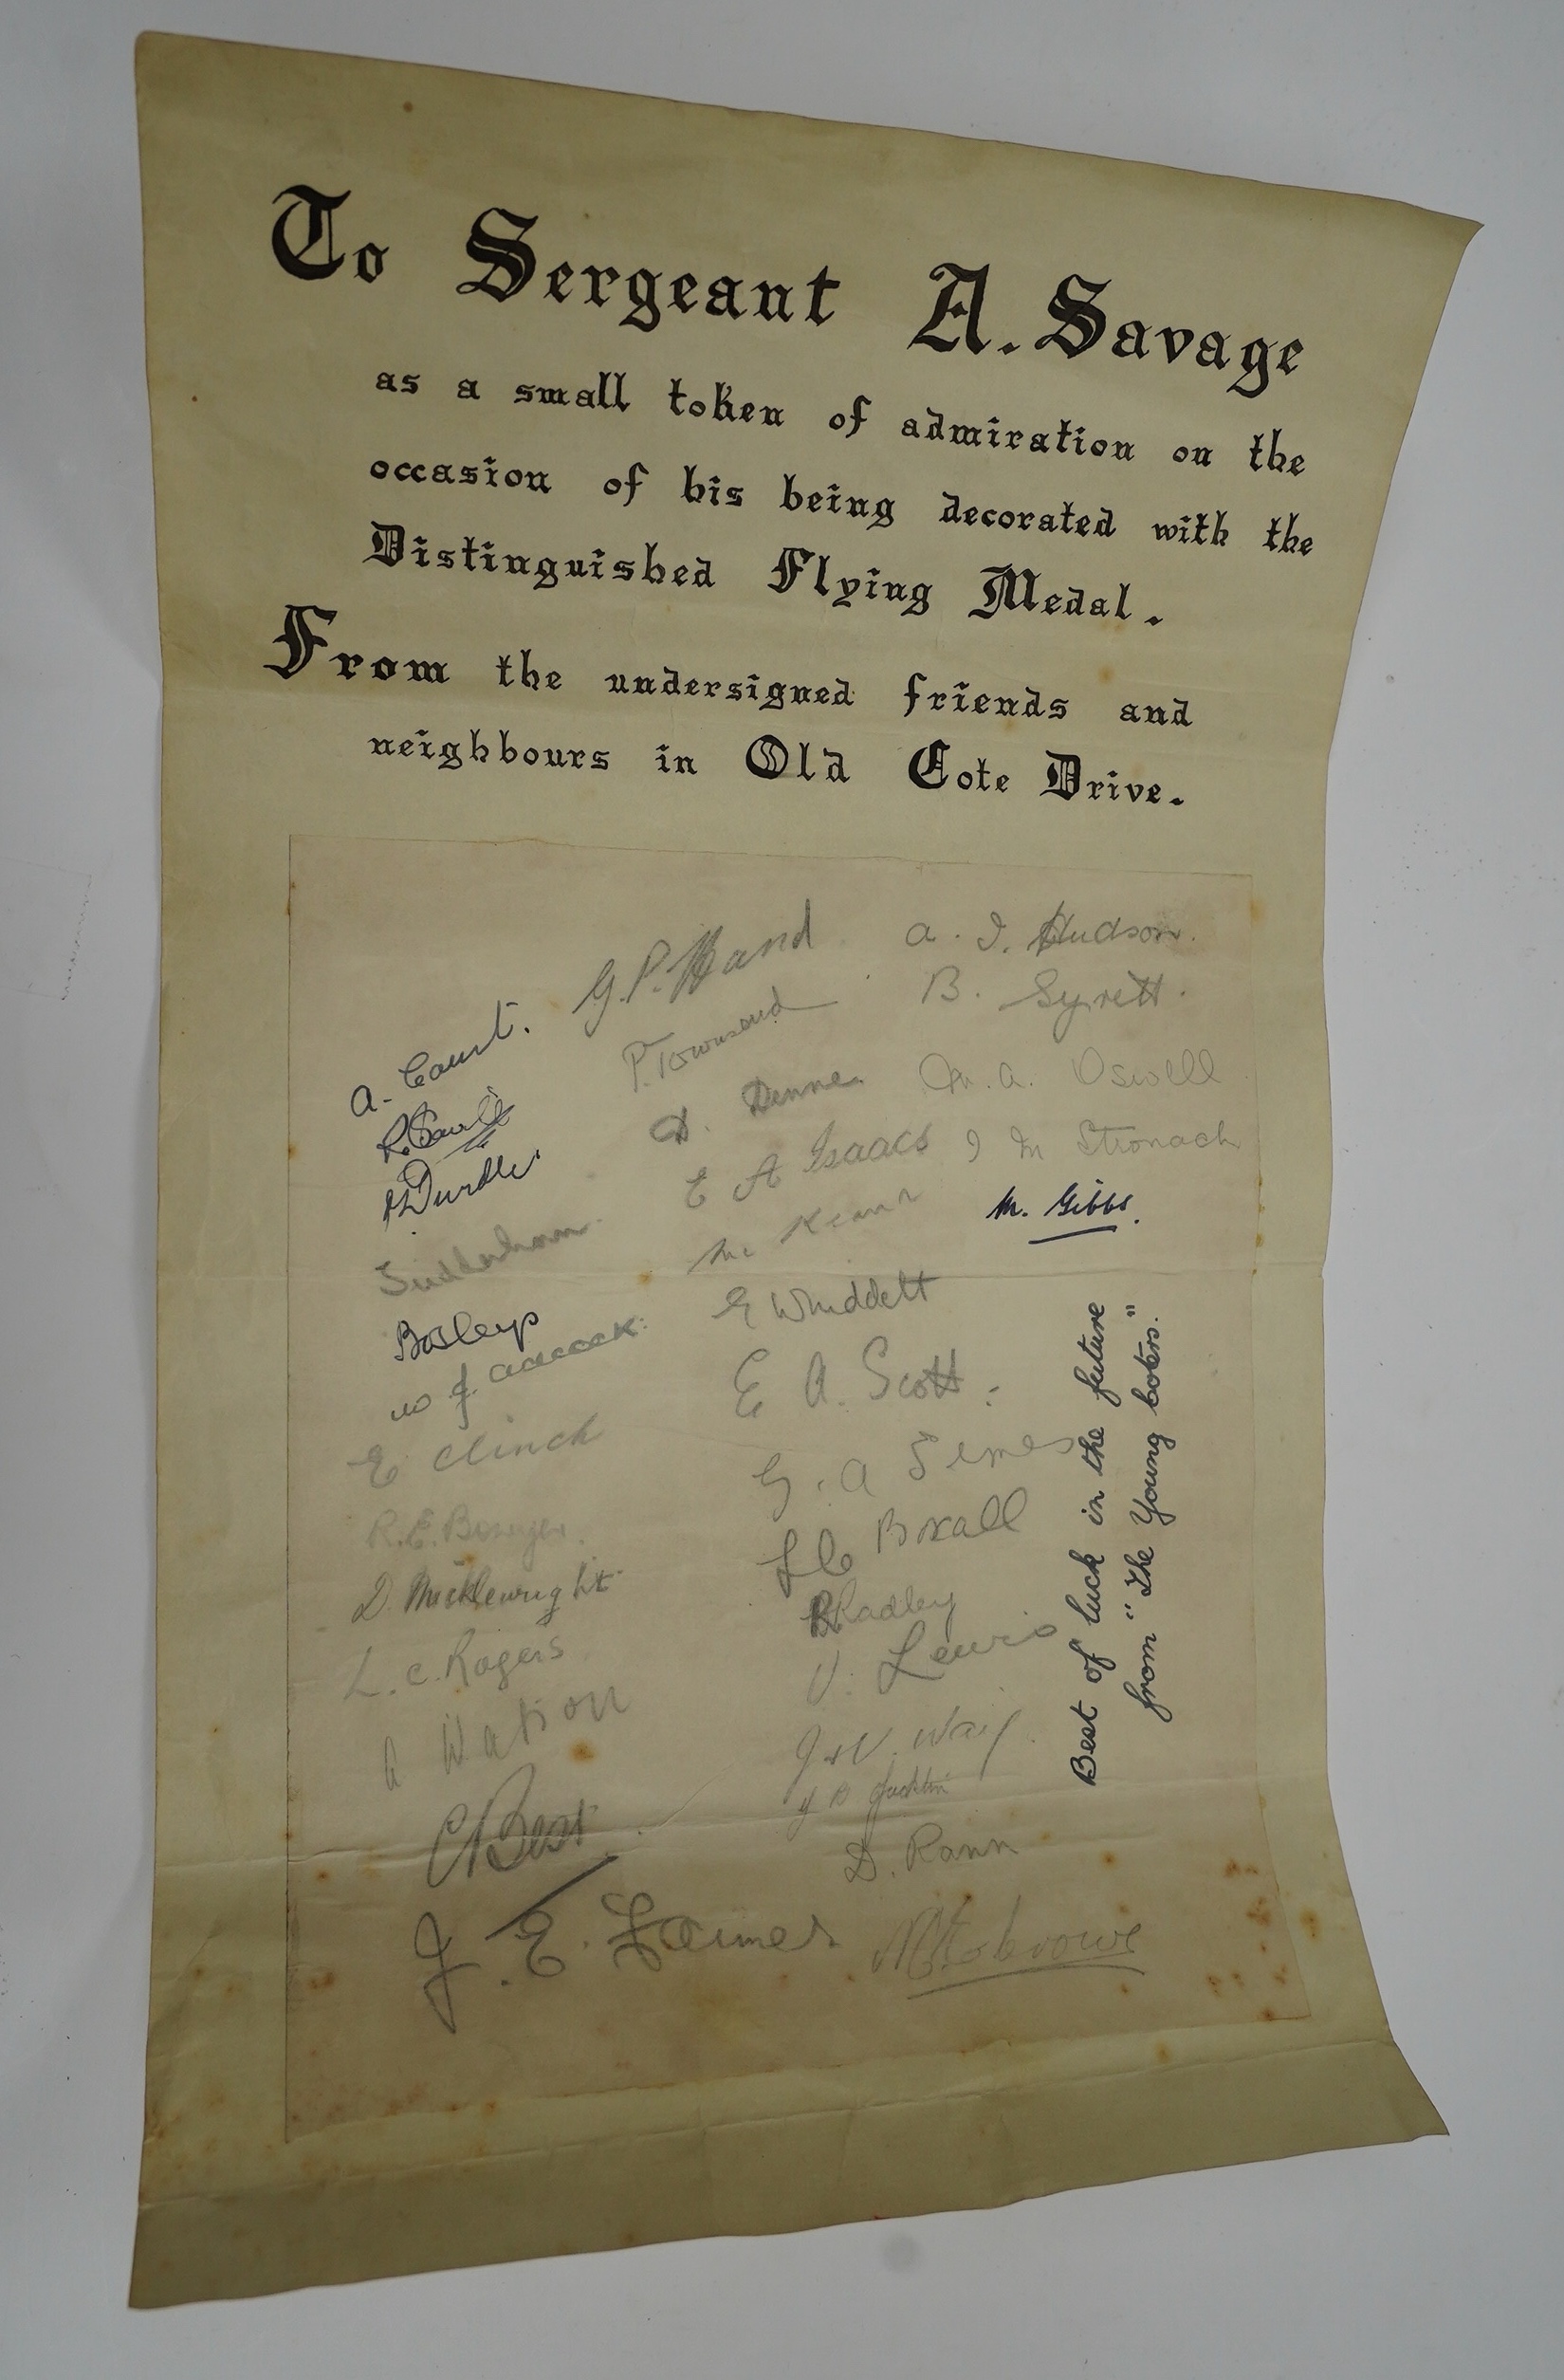 To Sergeant A. Savage
as a small token of admiration on the
occasion of his being decorated with the
Distinguished Flying Medal.
From the undersigned friends and
neighbours in Old Cote Drive.
A. Caunt.
Bosleys
E Clinch
D. Micklewright
L. C. Rogers
A Watson
C Best
J. E.
G. P. Hand
P. Townsend
D. Denne
E A Isaacs
E Whiddett
E A. Scott.
G. A
L C Boxall
R Radley
V. Lewis
D. Rann
A. I. Hudson.
B. Syrett.
M. A. Oswell
I M Stronach
M. Gibbs.
Best of luck in the future
from "The Young Coters."